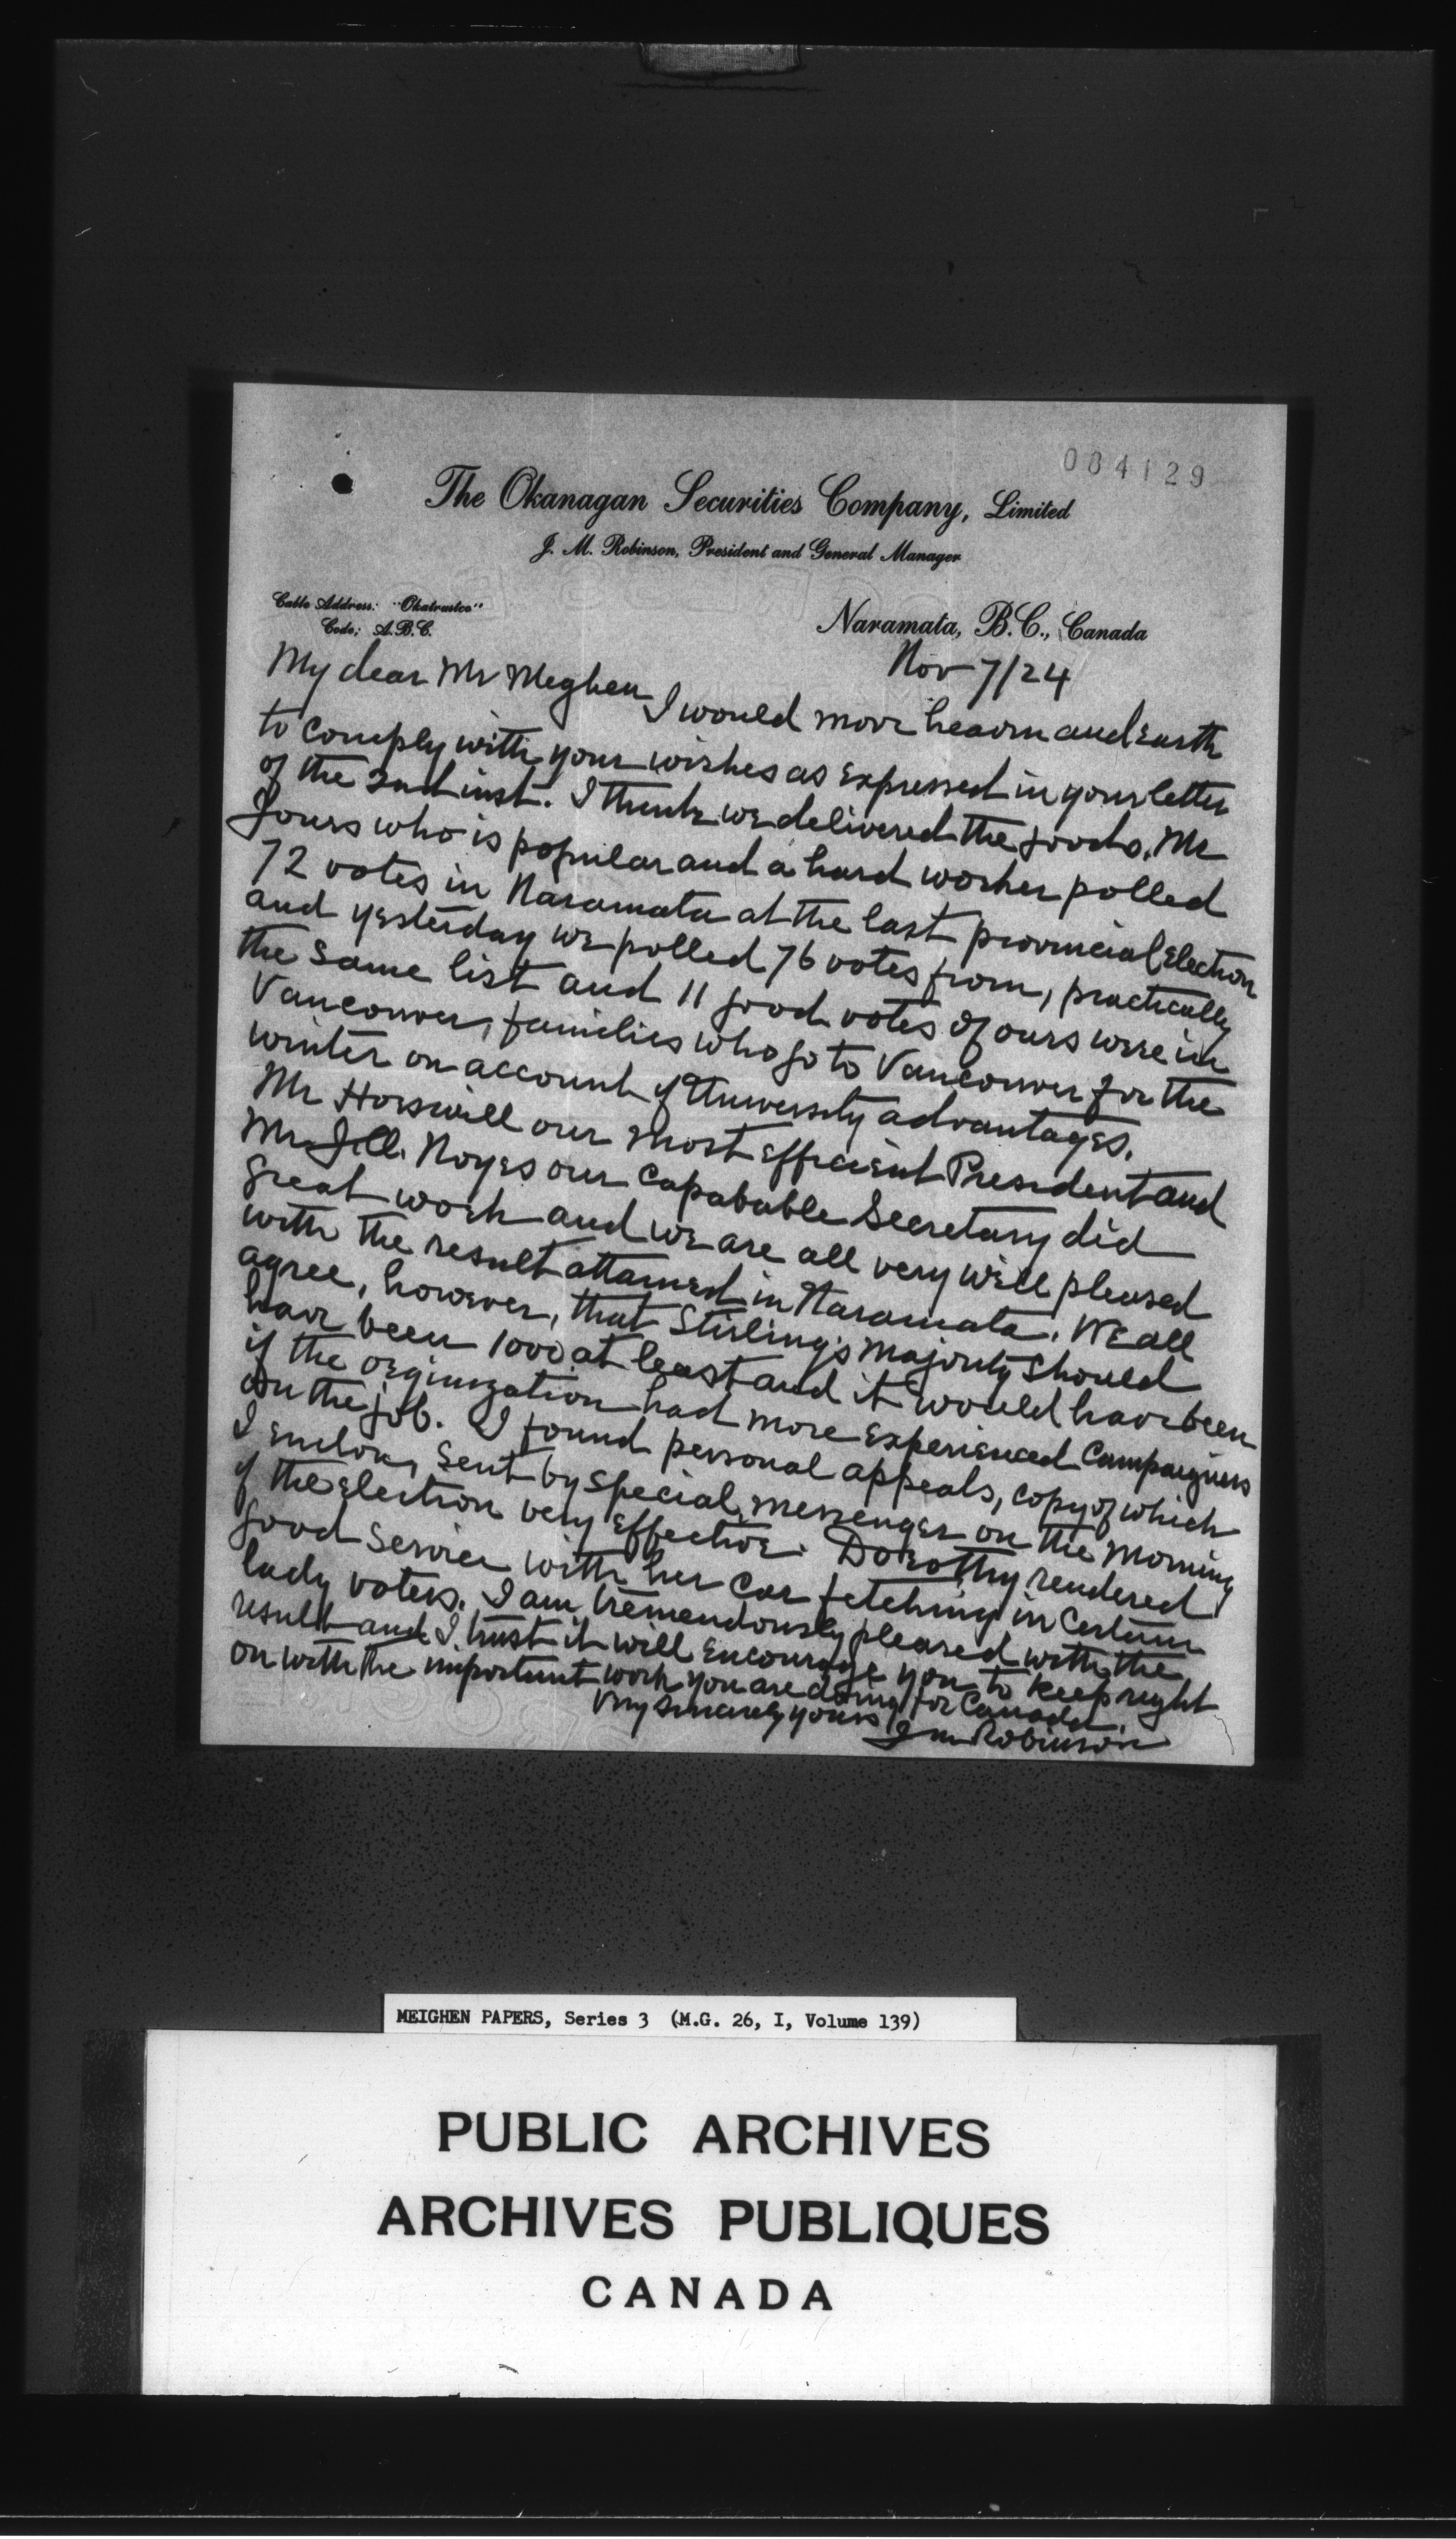 084129
The Okanagan Securities Company, Limited
J. M. Robinson, President and General Manager
Cable Address: "Okatrustco"
Code; A.B.C.
Naramata, B.C., Canada
Nov 7/24
My dear Mr Meghen
I would move heaven and Earth
to comply with your wishes as expressed in your letter
of the 2nd inst. I think we delivered the goods. Mr
Jones who is popular and a hard worker polled
72 votes in Naramata at the last provincial Election
and yesterday we polled 76 votes from, practically
the same list and 11 good votes of ours were in
Vancouver, families who go to Vancouver for the
winter on account of University advantages.
Mr Horswill our most efficient President and
Mr Noyes our capabable Secretary did
great work and we are all very well pleased
with the result attained in Naramata. We all
agree, however, that Stirling's Majority should
have been 1000 at least and it would have been
if the orginization had more experienced Campaigners
on the job. I found personal appeals, copy of which
I enclose, sent by special messenger on the morning
of the election very effective. Dorothy rendered
good service with her car fetching in certain
lady voters. I am tremendously pleased with the
result and I trust it will encourage you to keep right
on with the important work you are doing for Canada.
Very sincerely yours
J M Robinson
MEIGHEN PAPERS, Series 3 (M.G. 26, I, Volume 139)
PUBLIC ARCHIVES
ARCHIVES PUBLIQUES
CANADA